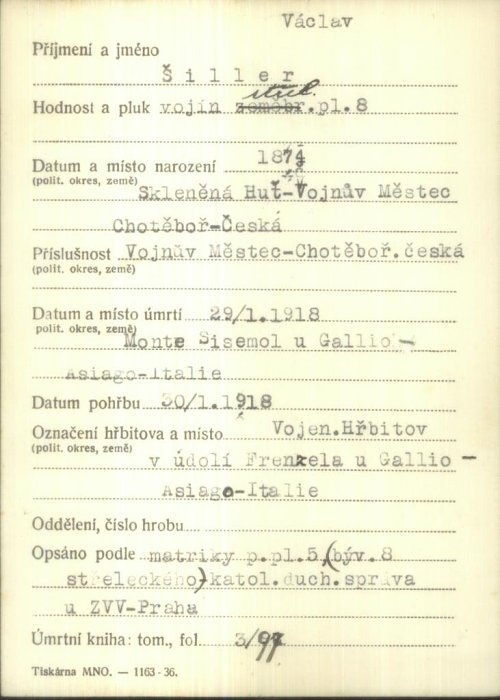 Václav
Příjmení a jméno
Šiller
střel.
Hodnost a pluk vojín zeměbr.pl.8
Datum a místo narození 1874
(polit. okres, země) Skleněná Huť-Vojnův Městec
Chotěboř-Česká
Příslušnost Vojnův Městec-Chotěboř.česká
(polit. okres, země)
Datum a místo úmrtí 29/1.1918
polit. okres, země) Monte Sisemol u Gallio -
Asiago-Italie
Datum pohřbu 30/1.1918
Označení hřbitova a místo Vojen.Hřbitov
(polit. okres, země) v údolí Frenzela u Gallio -
Asiago-Italie
Oddělení, číslo hrobu
Opsáno podle matriky p.pl.5,(býv.8
střeleckého)katol.duch.správa
u ZVV-Praha
Úmrtní kniha: tom., fol. 3/97
Tiskárna MNO. — 1163-36.